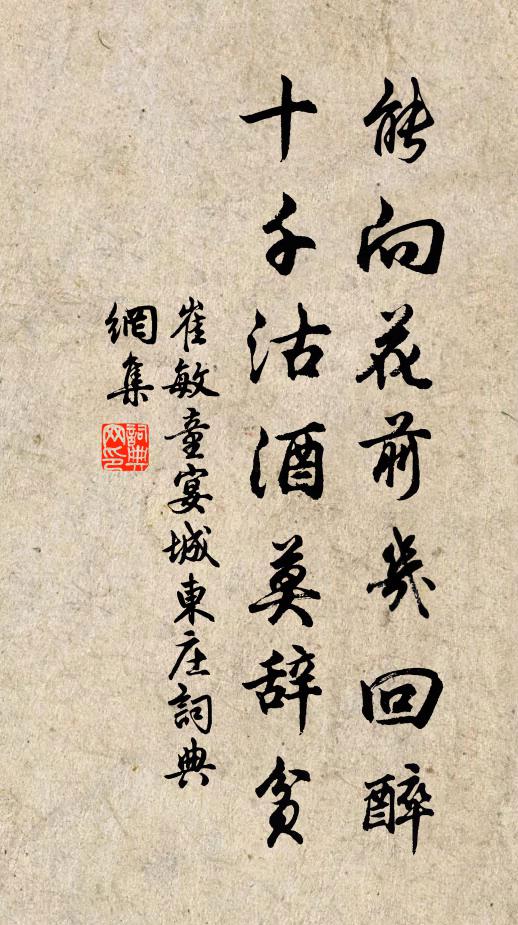 能向花前幾回醉
十千沽酒莫辞貧
崔敏童宴城東庄詞典
網集
詞典网印